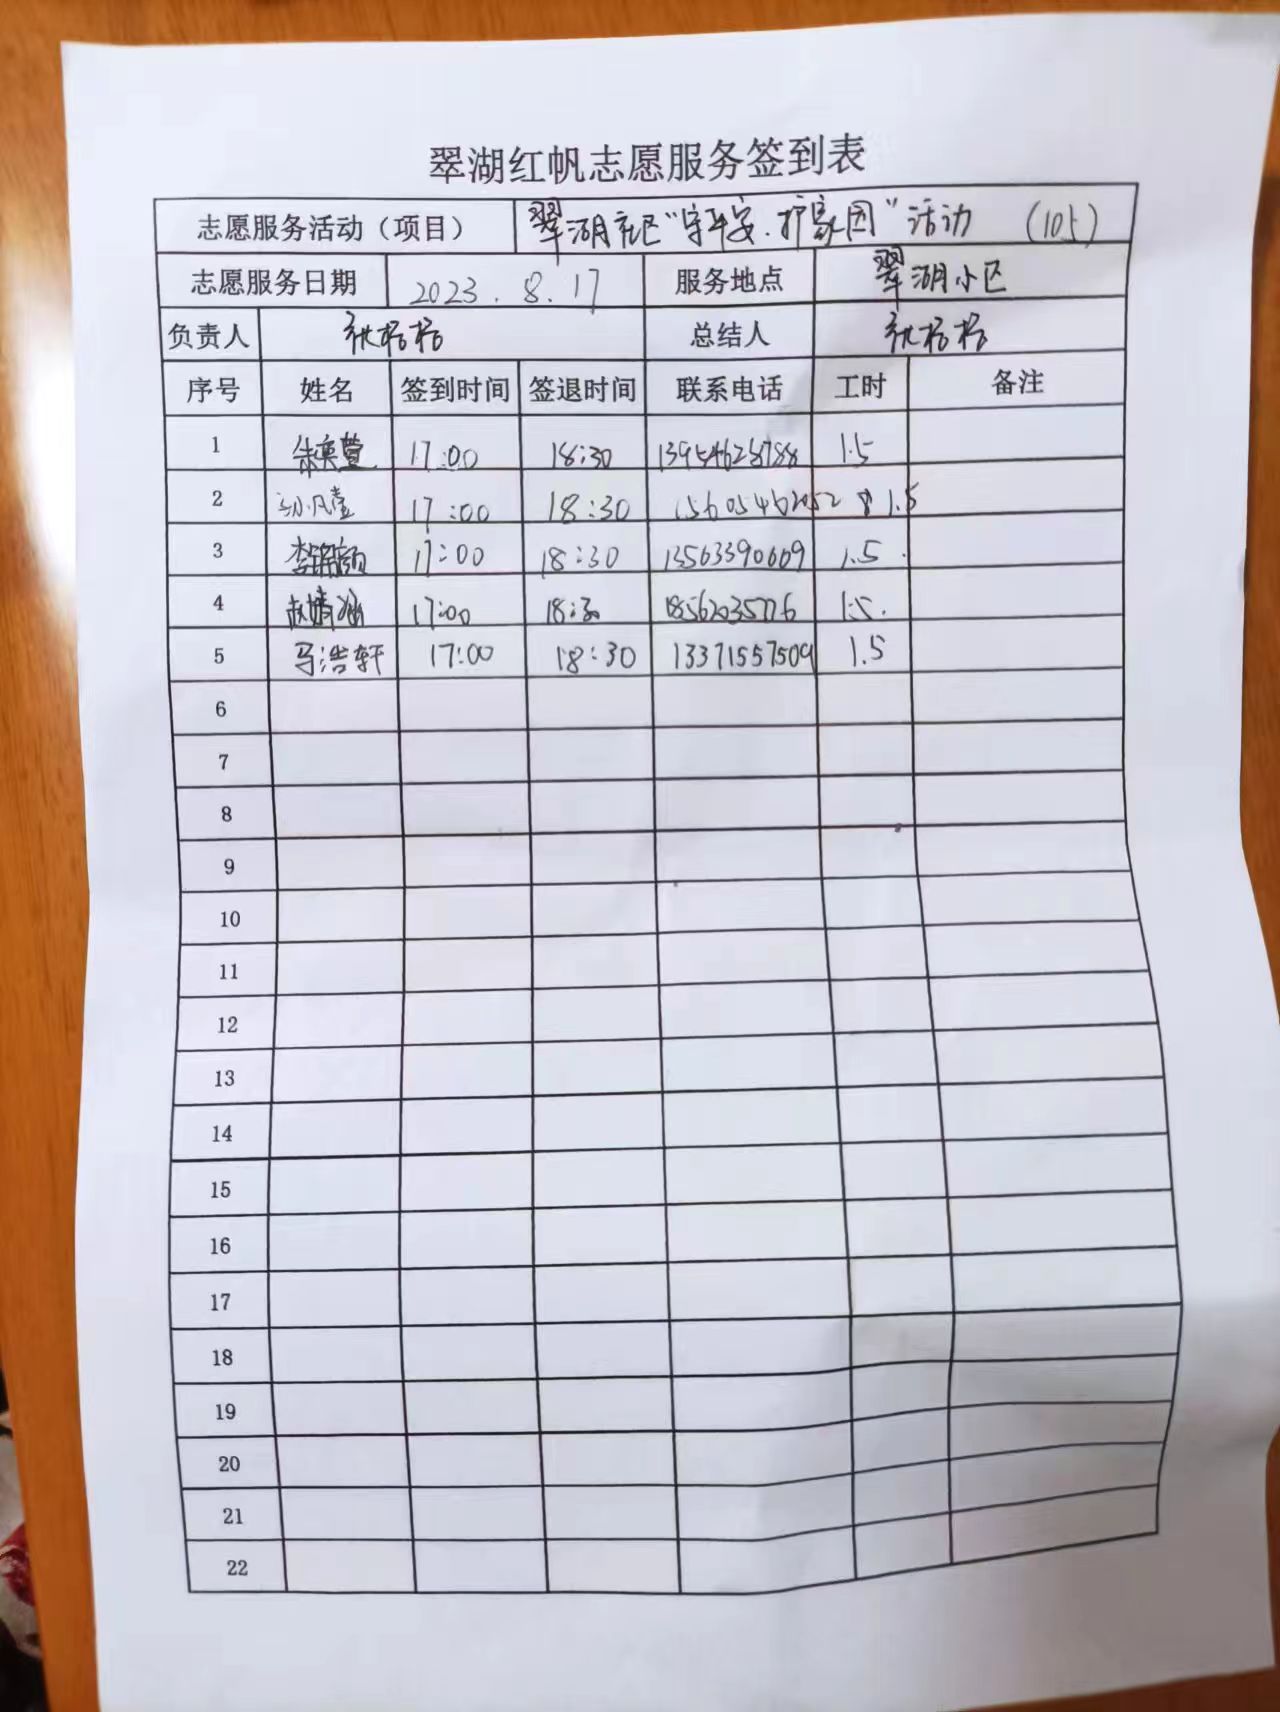 翠湖红帆志愿服务签到表
志愿服务活动（项目） 翠湖社区“守平安.护家园”活动 （105）
志愿服务日期 2023.8.17 服务地点 翠湖小区
负责人 总结人
序号 姓名 签到时间 签退时间 联系电话 工时 备注
1 17:00 18:30 1.5
2 17:00 18:30 15605462052 1.5
3 17:00 18:30 13563390609 1.5
4 赵婧涵 17:00 18:30 18562035776 1.5
5 马浩轩 17:00 18:30 13371557509 1.5
6
7
8
9
10
11
12
13
14
15
16
17
18
19
20
21
22